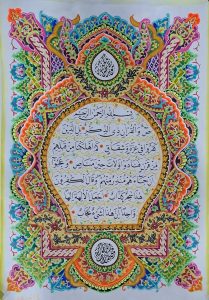 بسم الله الرحمن الرحيم
ص والقرآن ذي الذكر بل الذين
كفروا في عزة وشقاق كم أهلكنا من قبلهم
من قرن فنادوا ولات حين مناص وعجبوا
أن جاءهم منذر منهم وقال الكافرون
هذا ساحر كذاب أجعل الآلهة إلها
واحدا إن هذا لشيء عجاب